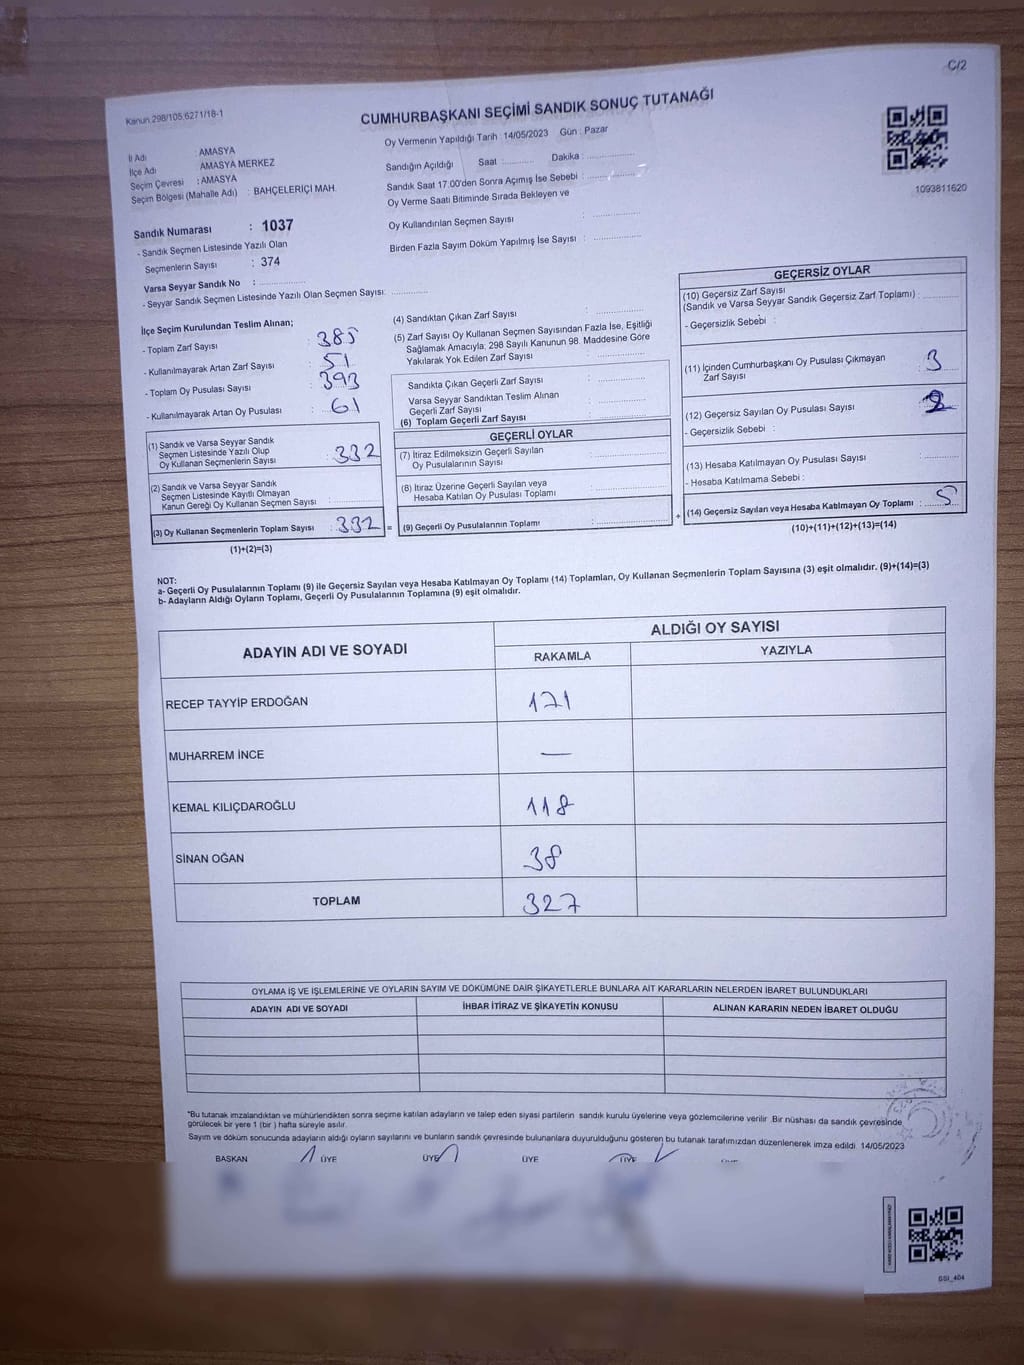 C/2
Kanun:298/105.6271/18-1
CUMHURBAŞKANI SEÇİMİ SANDIK SONUÇ TUTANAĞI
İl Adı : AMASYA
İlçe Adı AMASYA MERKEZ
Seçim Çevresi : AMASYA
Seçim Bölgesi (Mahalle Adı) : BAHÇELERİÇİ MAH.
Oy Vermenin Yapıldığı Tarih : 14/05/2023 Gün : Pazar
Sandığın Açıldığı Saat Dakika :
Sandık Saat 17:00'den Sonra Açımış İse Sebebi :
Oy Verme Saati Bitiminde Sırada Bekleyen ve
Oy Kullandırılan Seçmen Sayısı :
Birden Fazla Sayım Döküm Yapılmış İse Sayısı :
1093811620
Sandık Numarası : 1037
- Sandık Seçmen Listesinde Yazılı Olan
Seçmenlerin Sayısı : 374
Varsa Seyyar Sandık No :
- Seyyar Sandık Seçmen Listesinde Yazılı Olan Seçmen Sayısı:
İlçe Seçim Kurulundan Teslim Alınan;
- Toplam Zarf Sayısı : 385
- Kullanılmayarak Artan Zarf Sayısı : 51
- Toplam Oy Pusulası Sayısı : 393
- Kullanılmayarak Artan Oy Pusulası : 61
(1) Sandık ve Varsa Seyyar Sandık
Seçmen Listesinde Yazılı Olup
Oy Kullanan Seçmenlerin Sayısı : 332
(2) Sandık ve Varsa Seyyar Sandık
Seçmen Listesinde Kayıtlı Olmayan
Kanun Gereği Oy Kullanan Seçmen Sayısı :
(3) Oy Kullanan Seçmenlerin Toplam Sayısı : 332
(1)+(2)=(3)
(4) Sandıktan Çıkan Zarf Sayısı :
(5) Zarf Sayısı Oy Kullanan Seçmen Sayısından Fazla İse, Eşitliği
Sağlamak Amacıyla; 298 Sayılı Kanunun 98. Maddesine Göre
Yakılarak Yok Edilen Zarf Sayısı :
Sandıkta Çıkan Geçerli Zarf Sayısı :
Varsa Seyyar Sandıktan Teslim Alınan
Geçerli Zarf Sayısı :
(6) Toplam Geçerli Zarf Sayısı :
=
GEÇERLİ OYLAR
(7) İtiraz Edilmeksizin Geçerli Sayılan
Oy Pusulalarının Sayısı :
(8) İtiraz Üzerine Geçerli Sayılan veya
Hesaba Katılan Oy Pusulası Toplamı :
(9) Geçerli Oy Pusulalarının Toplamı :
+
GEÇERSİZ OYLAR
(10) Geçersiz Zarf Sayısı
(Sandık ve Varsa Seyyar Sandık Geçersiz Zarf Toplamı) :
- Geçersizlik Sebebi :
(11) İçinden Cumhurbaşkanı Oy Pusulası Çıkmayan
Zarf Sayısı : 3
(12) Geçersiz Sayılan Oy Pusulası Sayısı : 2
- Geçersizlik Sebebi :
(13) Hesaba Katılmayan Oy Pusulası Sayısı :
- Hesaba Katılmama Sebebi :
(14) Geçersiz Sayılan veya Hesaba Katılmayan Oy Toplamı : 5
(10)+(11)+(12)+(13)=(14)
NOT:
a- Geçerli Oy Pusulalarının Toplamı (9) ile Geçersiz Sayılan veya Hesaba Katılmayan Oy Toplamı (14) Toplamları, Oy Kullanan Seçmenlerin Toplam Sayısına (3) eşit olmalıdır. (9)+(14)=(3)
b- Adayların Aldığı Oyların Toplamı, Geçerli Oy Pusulalarının Toplamına (9) eşit olmalıdır.
ADAYIN ADI VE SOYADI ALDIĞI OY SAYISI
RAKAMLA YAZIYLA
RECEP TAYYİP ERDOĞAN 171
MUHARREM İNCE —
KEMAL KILIÇDAROĞLU 118
SİNAN OĞAN 38
TOPLAM 327
OYLAMA İŞ VE İŞLEMLERİNE VE OYLARIN SAYIM VE DÖKÜMÜNE DAİR ŞİKAYETLERLE BUNLARA AİT KARARLARIN NELERDEN İBARET BULUNDUKLARI
ADAYIN ADI VE SOYADI İHBAR İTİRAZ VE ŞİKAYETİN KONUSU ALINAN KARARIN NEDEN İBARET OLDUĞU
*Bu tutanak imzalandıktan ve mühürlendikten sonra seçime katılan adayların ve talep eden siyasi partilerin sandık kurulu üyelerine veya gözlemcilerine verilir. Bir nüshası da sandık çevresinde
görülecek bir yere 1 (bir ) hafta süreyle asılır.
Sayım ve döküm sonucunda adayların aldığı oyların sayılarını ve bunların sandık çevresinde bulunanlara duyurulduğunu gösteren bu tutanak tarafımızdan düzenlenerek imza edildi. 14/05/2023
BAŞKAN ÜYE ÜYE ÜYE ÜYE
GSI_404